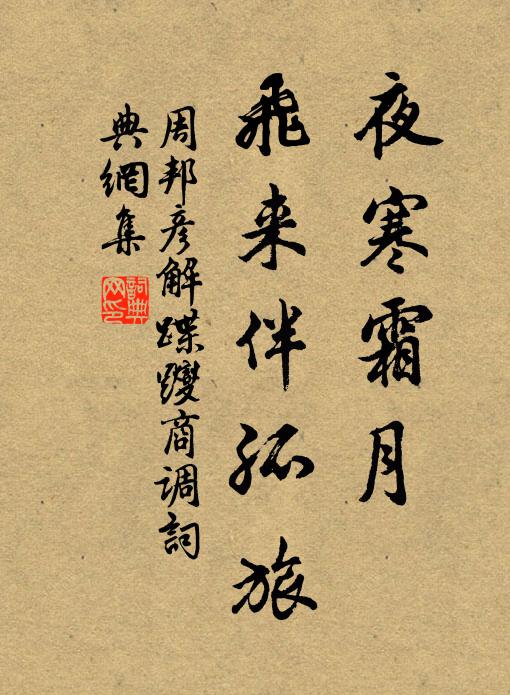 夜寒霜月
飛来伴孤旅
周邦彦解蹀躞商调詞
典網集
詞典网印